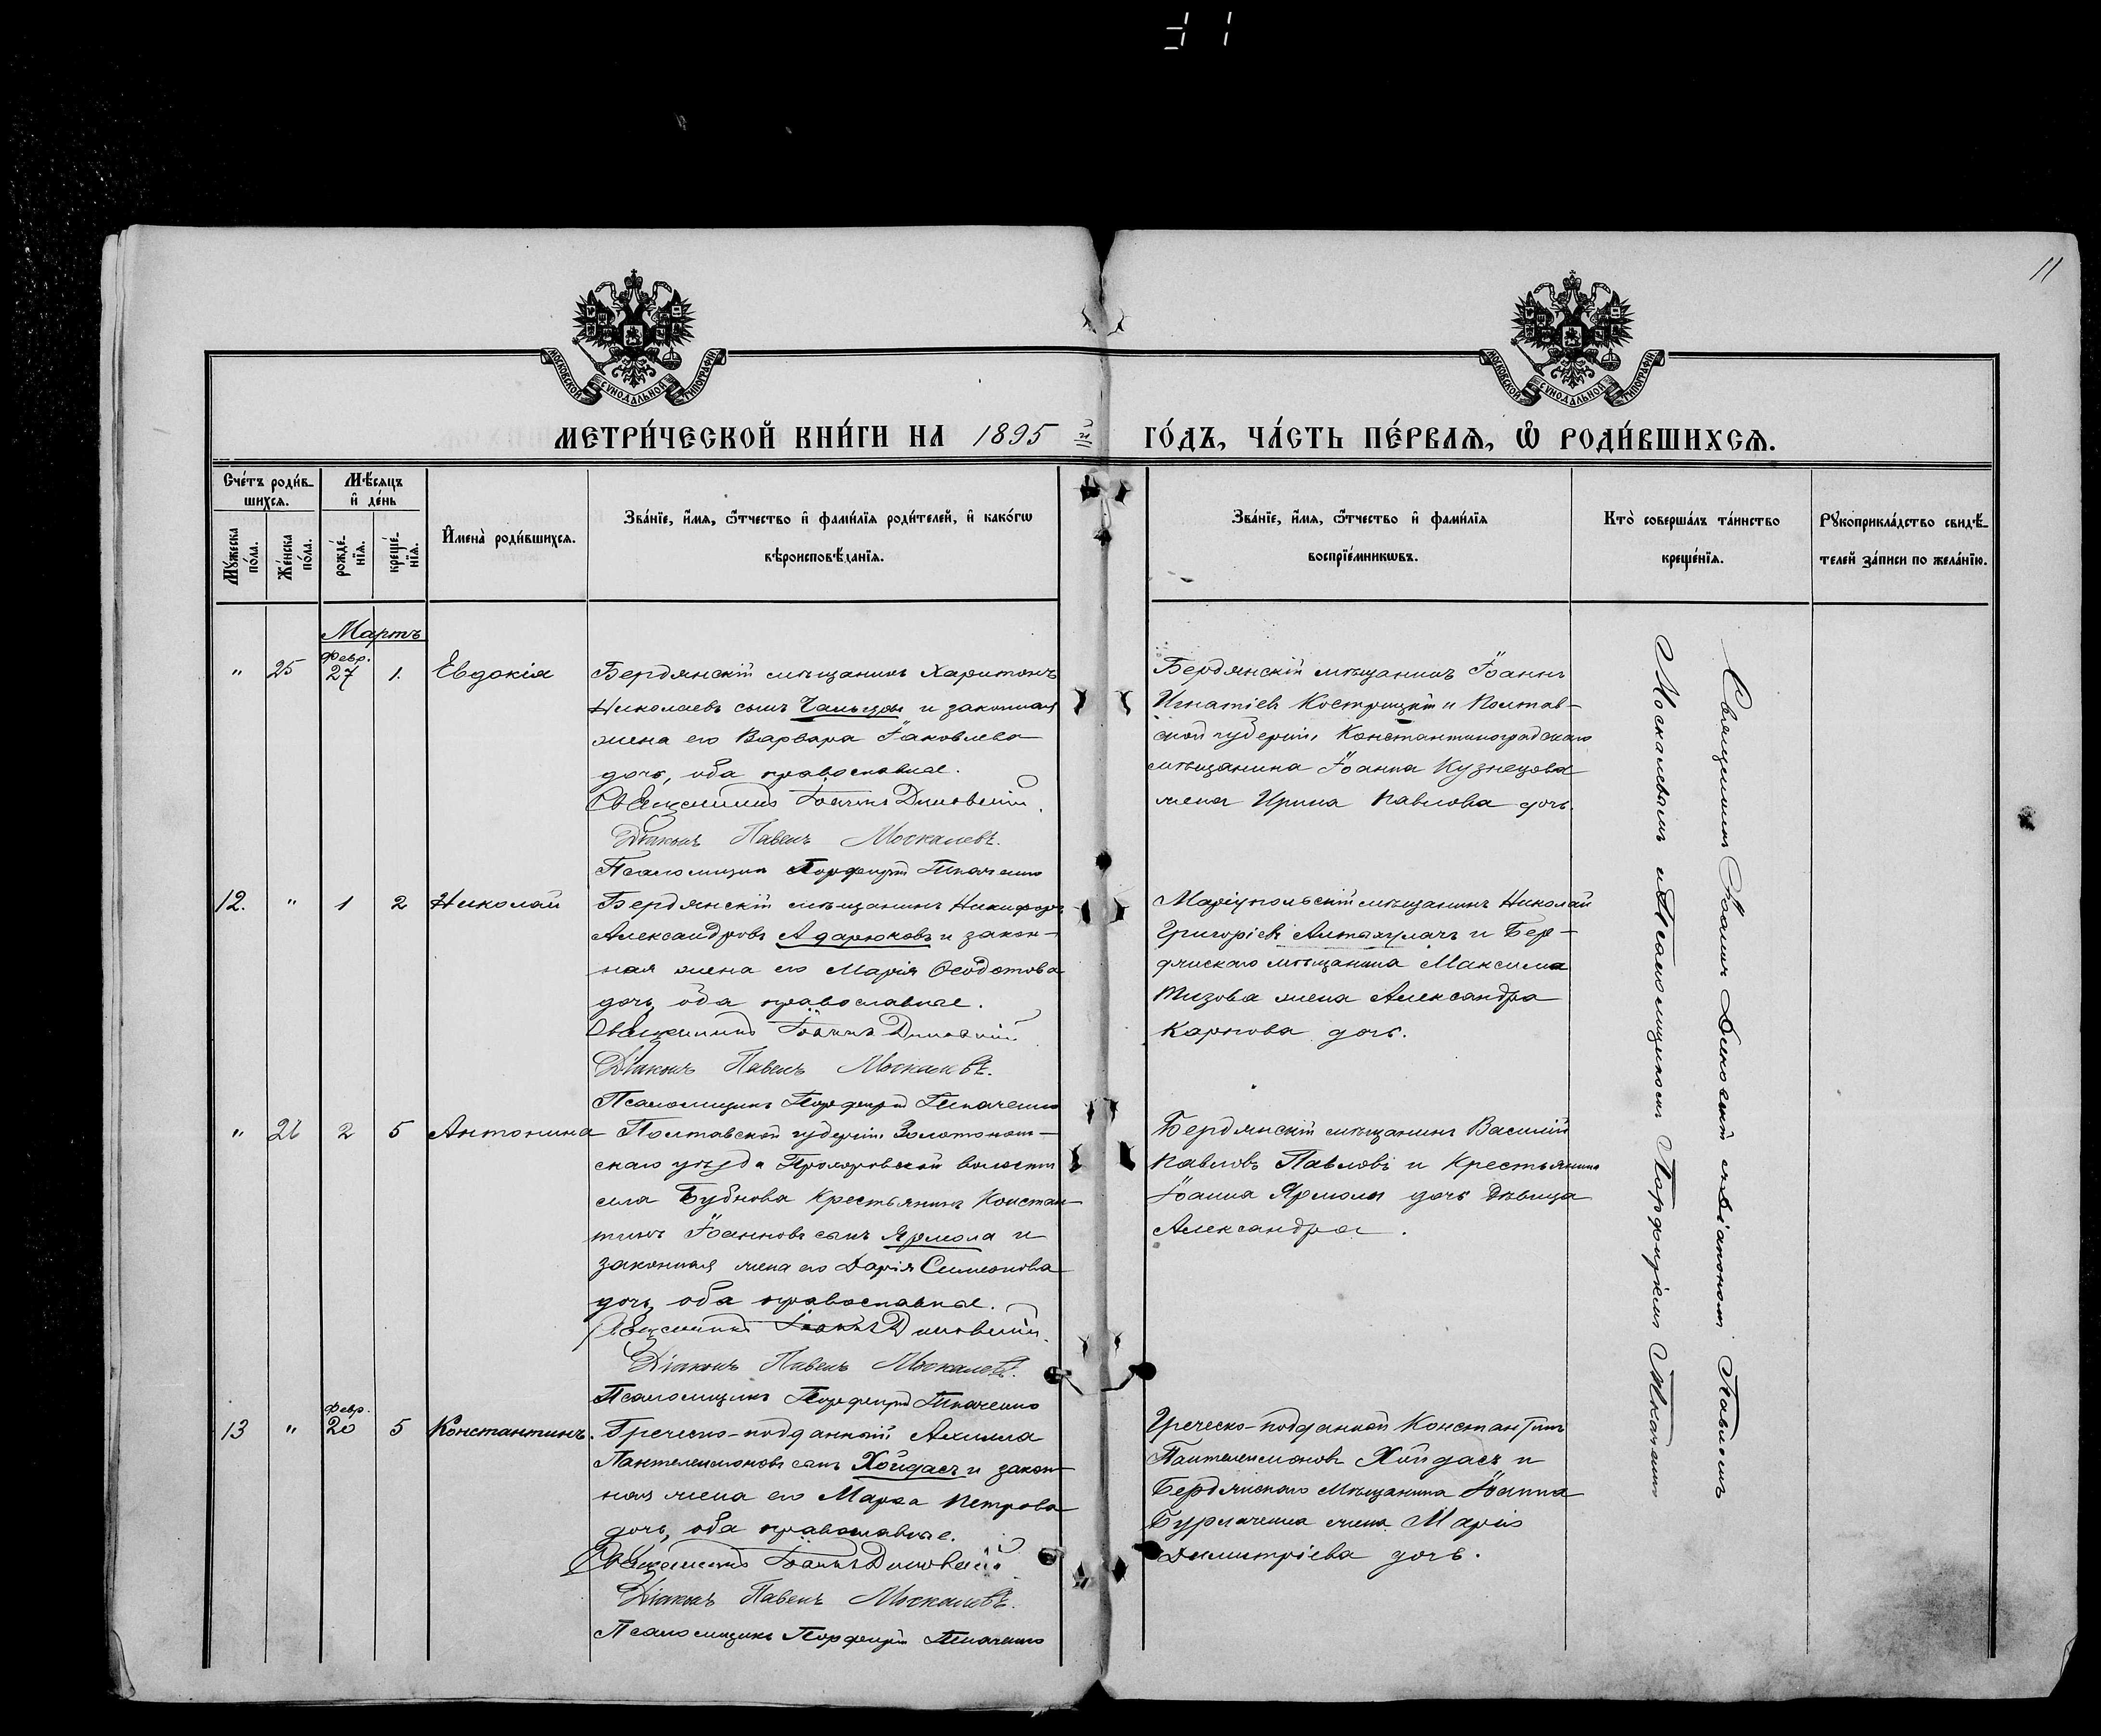 11
МОСКОВСКОЙ СУНОДАЛЬНОЙ ТИПОГРАФІИ
МОСКОВСКОЙ СУНОДАЛЬНОЙ ТИПОГРАФІИ
МЕТРИ́ЧЕСКОЙ КНИ́ГИ НА 1895 й ГО́ДЪ, ЧА́СТЬ ПЕ́РВАѦ, Ѡ РОДИ́ВШИХСѦ.
Сче́тъ роди́в-
шихсѧ.
Мѣ́сѧцъ
и҆ де́нь
Мꙋ́жеска
по́ла.
Же́нска
по́ла.
рожде́-
нїѧ.
креще́-
нїѧ.
И҆мена̀ роди́вшихсѧ.
Зва́нїе, и҆́мѧ, ѻ҆́тчество и҆ фами́лїѧ роди́телей, и҆ како́гѡ
вѣроисповѣ́данїѧ.
Зва́нїе, и҆́мѧ, ѻ҆́тчество и҆ фами́лїѧ
воспрїе́мникѡвъ.
Кто̀ соверша́лъ та́инство
креще́нїѧ.
Рꙋкоприкла́дство свидѣ́-
телей за́писи по жела́нїю.
Мартъ
" 25 Февр. 27 1. Евдокія
Бердянскій мѣщанинъ Харитонъ
Николаевъ сынъ и законная
жена его Варвара Іаковлева
дочь, оба православные.
Священникъ Іоаннъ
Діаконъ Павелъ Москалевъ.
Псаломщикъ Порфирій Ткаченко
Бердянскій мѣщанинъ Іоаннъ
Игнатіевъ Кострицкій и Полтав-
ской губерніи Константиноградскаго
мѣщанина Іоанна Кузнецова
жена Ирина Павлова дочь.
12. " 1 2 Николай
Бердянскій мѣщанинъ Никифоръ
Александровъ Адарюковъ и закон-
ная жена его Марія Ѳеодотова
дочь, оба православные.
Священникъ Іоаннъ
Діаконъ Павелъ Москалевъ.
Псаломщикъ Порфирій Ткаченко
Маріупольскій мѣщанинъ Николай
Григоріевъ и Бер-
дянскаго мѣщанина Максима
жена Александра
Карпова дочь.
" 26 2 5 Антонина
Полтавской губерніи Золотонош-
скаго уѣзда Прохоровской волости
села Бубнова крестьянинъ Констан-
тинъ Іоанновъ сынъ Ярмола и
законная жена его Дарія Симеонова
дочь, оба православные.
Священникъ Іоаннъ
Діаконъ Павелъ Москалевъ.
Псаломщикъ Порфирій Ткаченко
Бердянскій мѣщанинъ Василій
Павловъ Павловъ и крестьянина
Іоанна Ярмолы дочь дѣвица
Александра.
13 " Февр. 20 5 Константинъ.
Греческо-подданный Ахилла
Пантелеимоновъ сынъ Хойдасъ и закон-
ная жена его Марѳа Петрова
дочь, оба православные.
Священникъ Іоаннъ
Діаконъ Павелъ Москалевъ.
Псаломщикъ Порфирій Ткаченко
Греческо-подданный Константинъ
Пантелеимоновъ Хойдасъ и
Бердянскаго мѣщанина Іоанна
Бурлаченка жена Марія
Димитріева дочь.
Священникъ Іоаннъ съ Діакономъ Павломъ
Москалевымъ и Псаломщикомъ Порфиріемъ Ткаченко